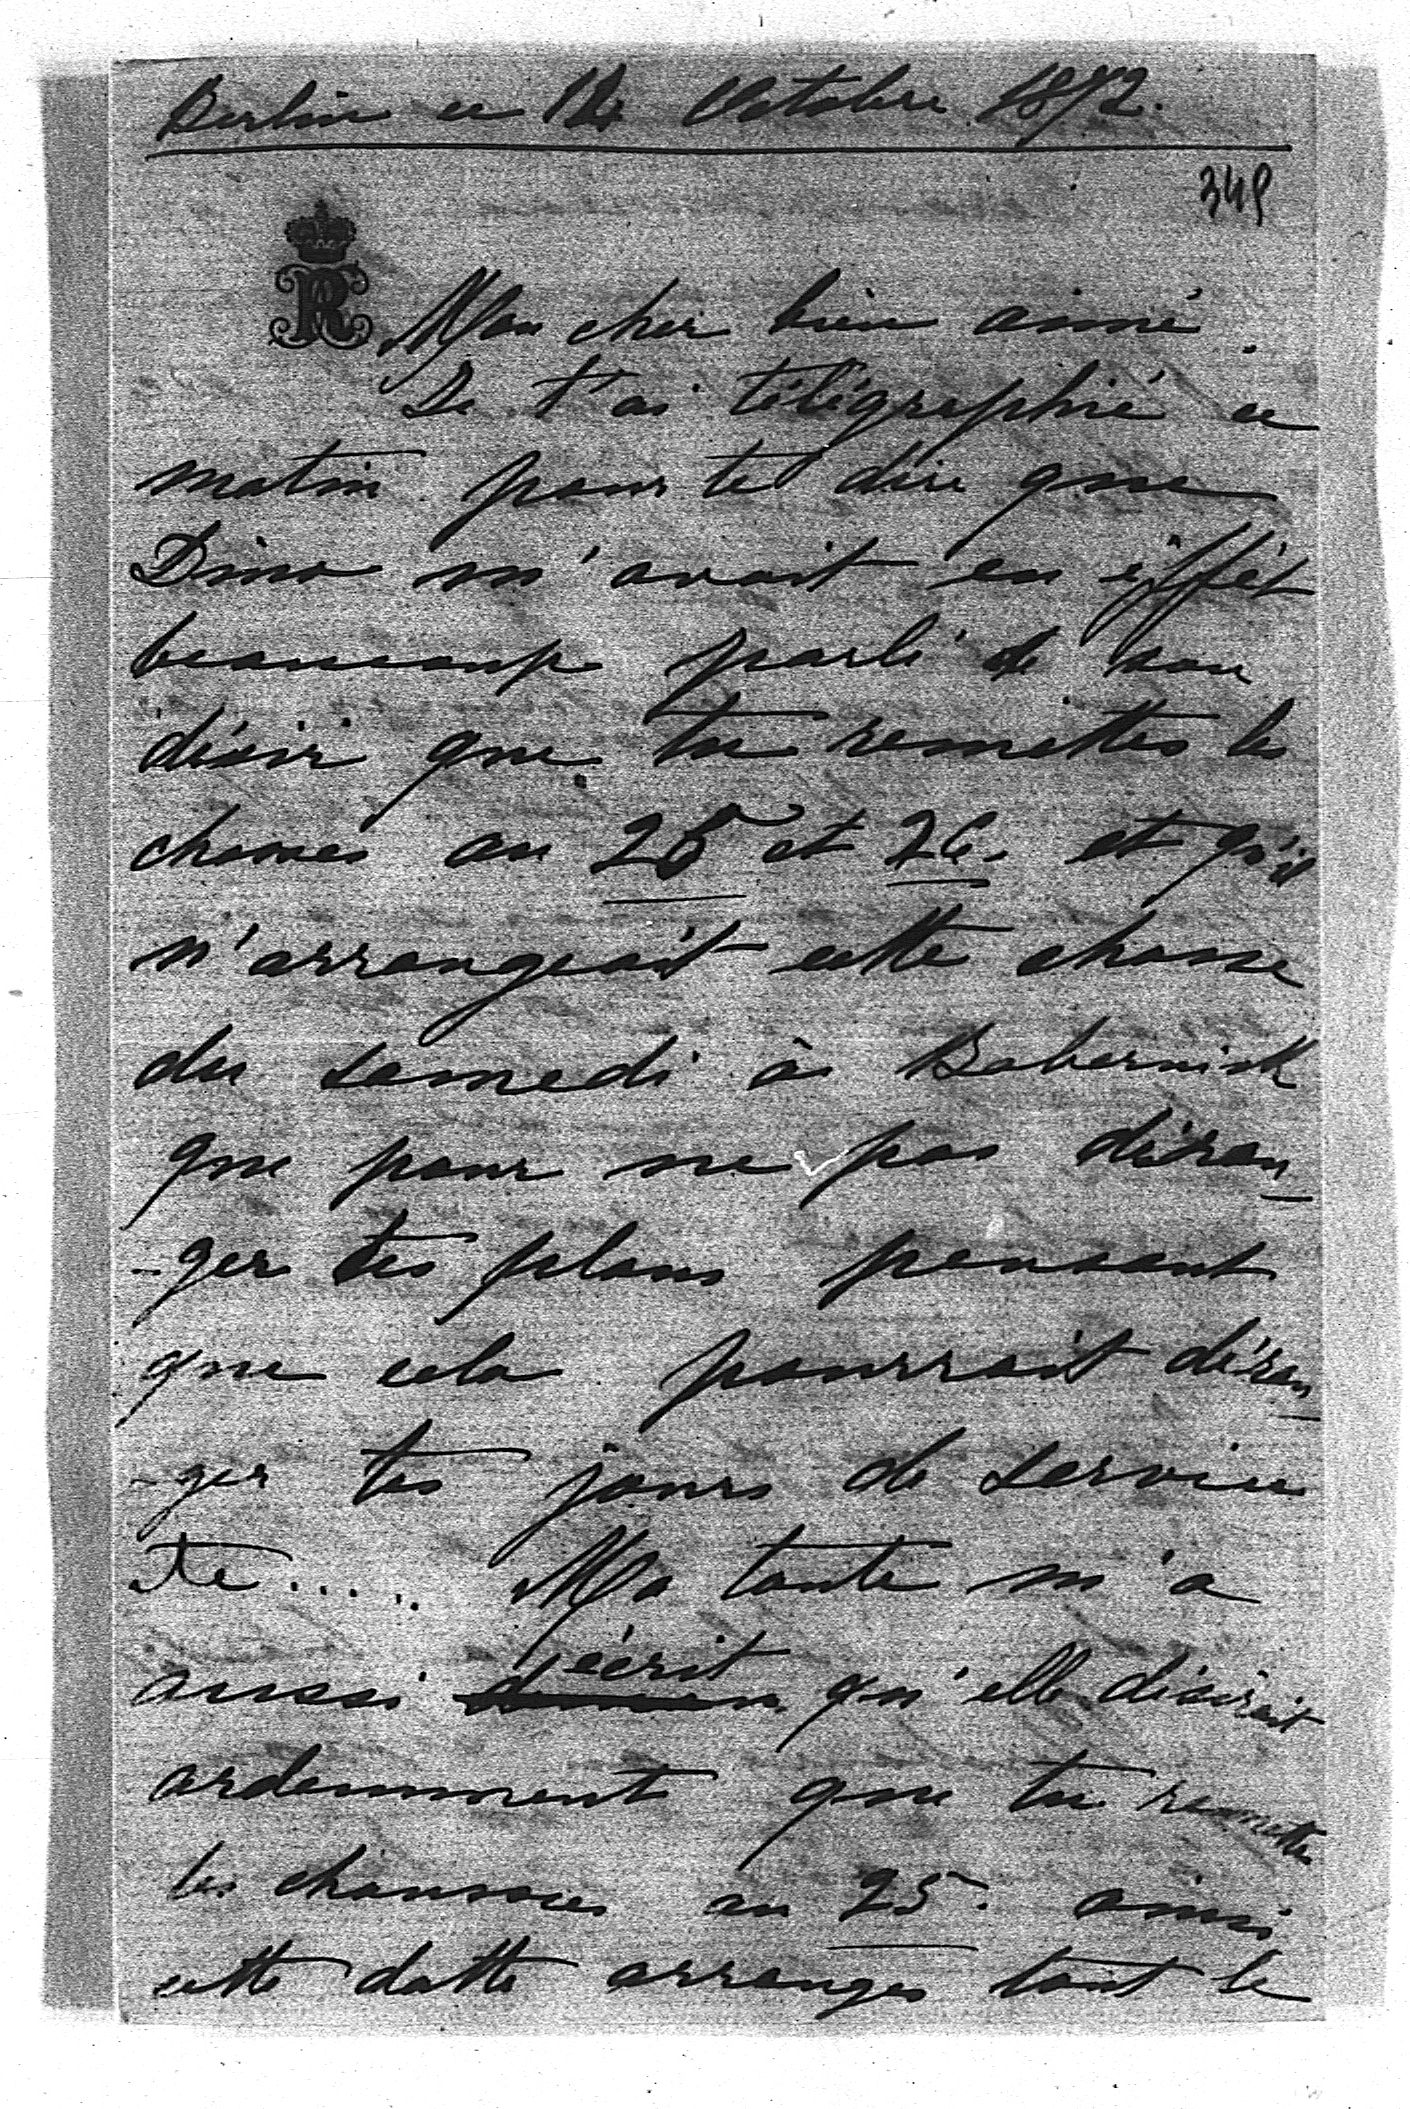 Berlin ce 12 Octobre 1872.
349
R
Mon cher bien aimé
Je t'ai télégraphié ce
matin pour te dire que
Dino m'avait en éffét
beaucoup parlé de son
désir que tu remettes les
chasses au 25 et 26. et qu'il
n'arrangeait cette chasse
du samedi à Bobernick
que pour ne pas déran
-ger tes plans pensant
que cela pourrait déran
-ger tes jours de service
etc.....  Ma tante m'a
aussi écrit qu'elle désirait
ardemment que tu remettes
les chasses au 25. ainsi
cette datte arranges tout le